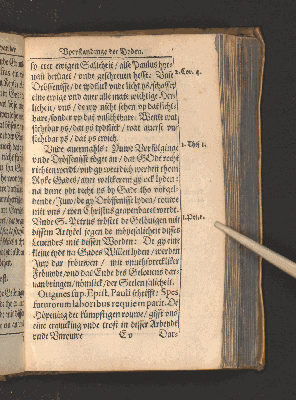 Vpermandinge der Doden.
tho erer ewigen Salicheit / alse Paulus hyr-
uan betüget / vnde geschreuen hefft: Vnse
Dröffenisse / de tydtlick vnde licht ys / schaffet
eine ewige vnd auer alle mate wichtige Her-
licheit / vns / de wy nicht sehen vp dat sicht-
bare / sonder vp dat vnsichtbare. Wente wat
sichtbar ys / dat ys tydtlick / wat auerst vn-
sichtbar ys / dat ys ewich.
2. Cor. 4.
Vnde auermahls: Juwe Vorfolginge
vnde Dröffenisse töget an / dat GOdt recht
richten werdt / vnd gy werdich werden thom
Ryke Gades / auer welckerem gy ock lyden:
na deme ydt recht ys by Gade tho vorgel-
dende / Juw / de gy Dröffenisse lyden / rouwe
mit vns / wen Christus geapenbaret werdt.
1. Thes. 1.
Vnde S. Petrus tröstet de Gelöuigen mit
dissen
Leuendes mit dissen Worden: De gy eine
kleine tydt na Gades Willen lyden / werden
Juw dar fröuwen / mit vnuthspreckliker
Fröuwde / vnd dat Ende des Gelouens dar-
uan bringen / nömlick / der Seelen salicheit.
1. Pet. 1.
Origenes sup. Epist. Pauli schrifft: Spes
futurorum laboribus requiem parit. De
Höpeninge der kümpstigen rouwe / gifft vns
eine erquicking vnde trost in desser Arbeydt
vnde Vnrouwe
Ey
Dar-